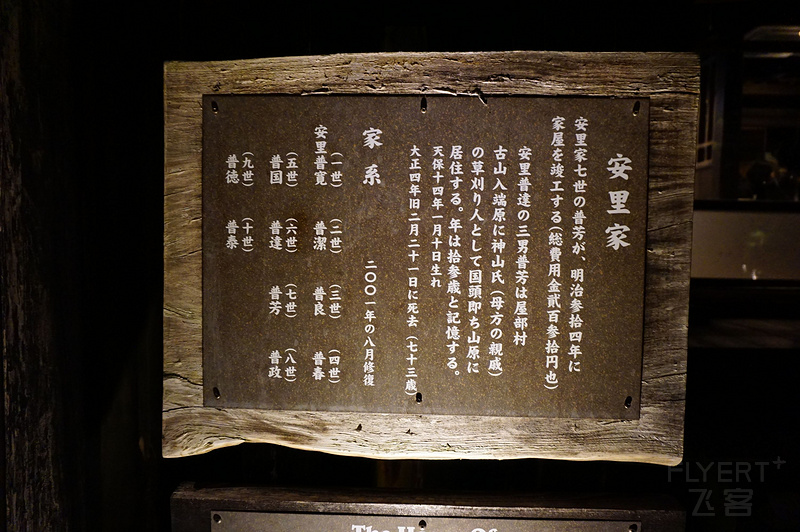 安里家
安里家七世の普芳が、明治参拾四年に
家屋を竣工する(総費用金貮百参拾円也)
安里普達の三男普芳は屋部村
古山入端原に神山氏(母方の親戚)
の草刈り人として国頭即ち山原に
居住する。年は拾参歳と記憶する。
天保十四年一月十日生れ
大正四年旧二月二十一日に死去(七十三歳)
家系
二〇〇一年の八月修復
(一世) (二世) (三世) (四世)
安里普寛 普潔 普良 普春
(五世) (六世) (七世) (八世)
普国 普達 普芳 普政
(九世) (十世)
普徳 普泰
The House Of
FLYERT+
飞客